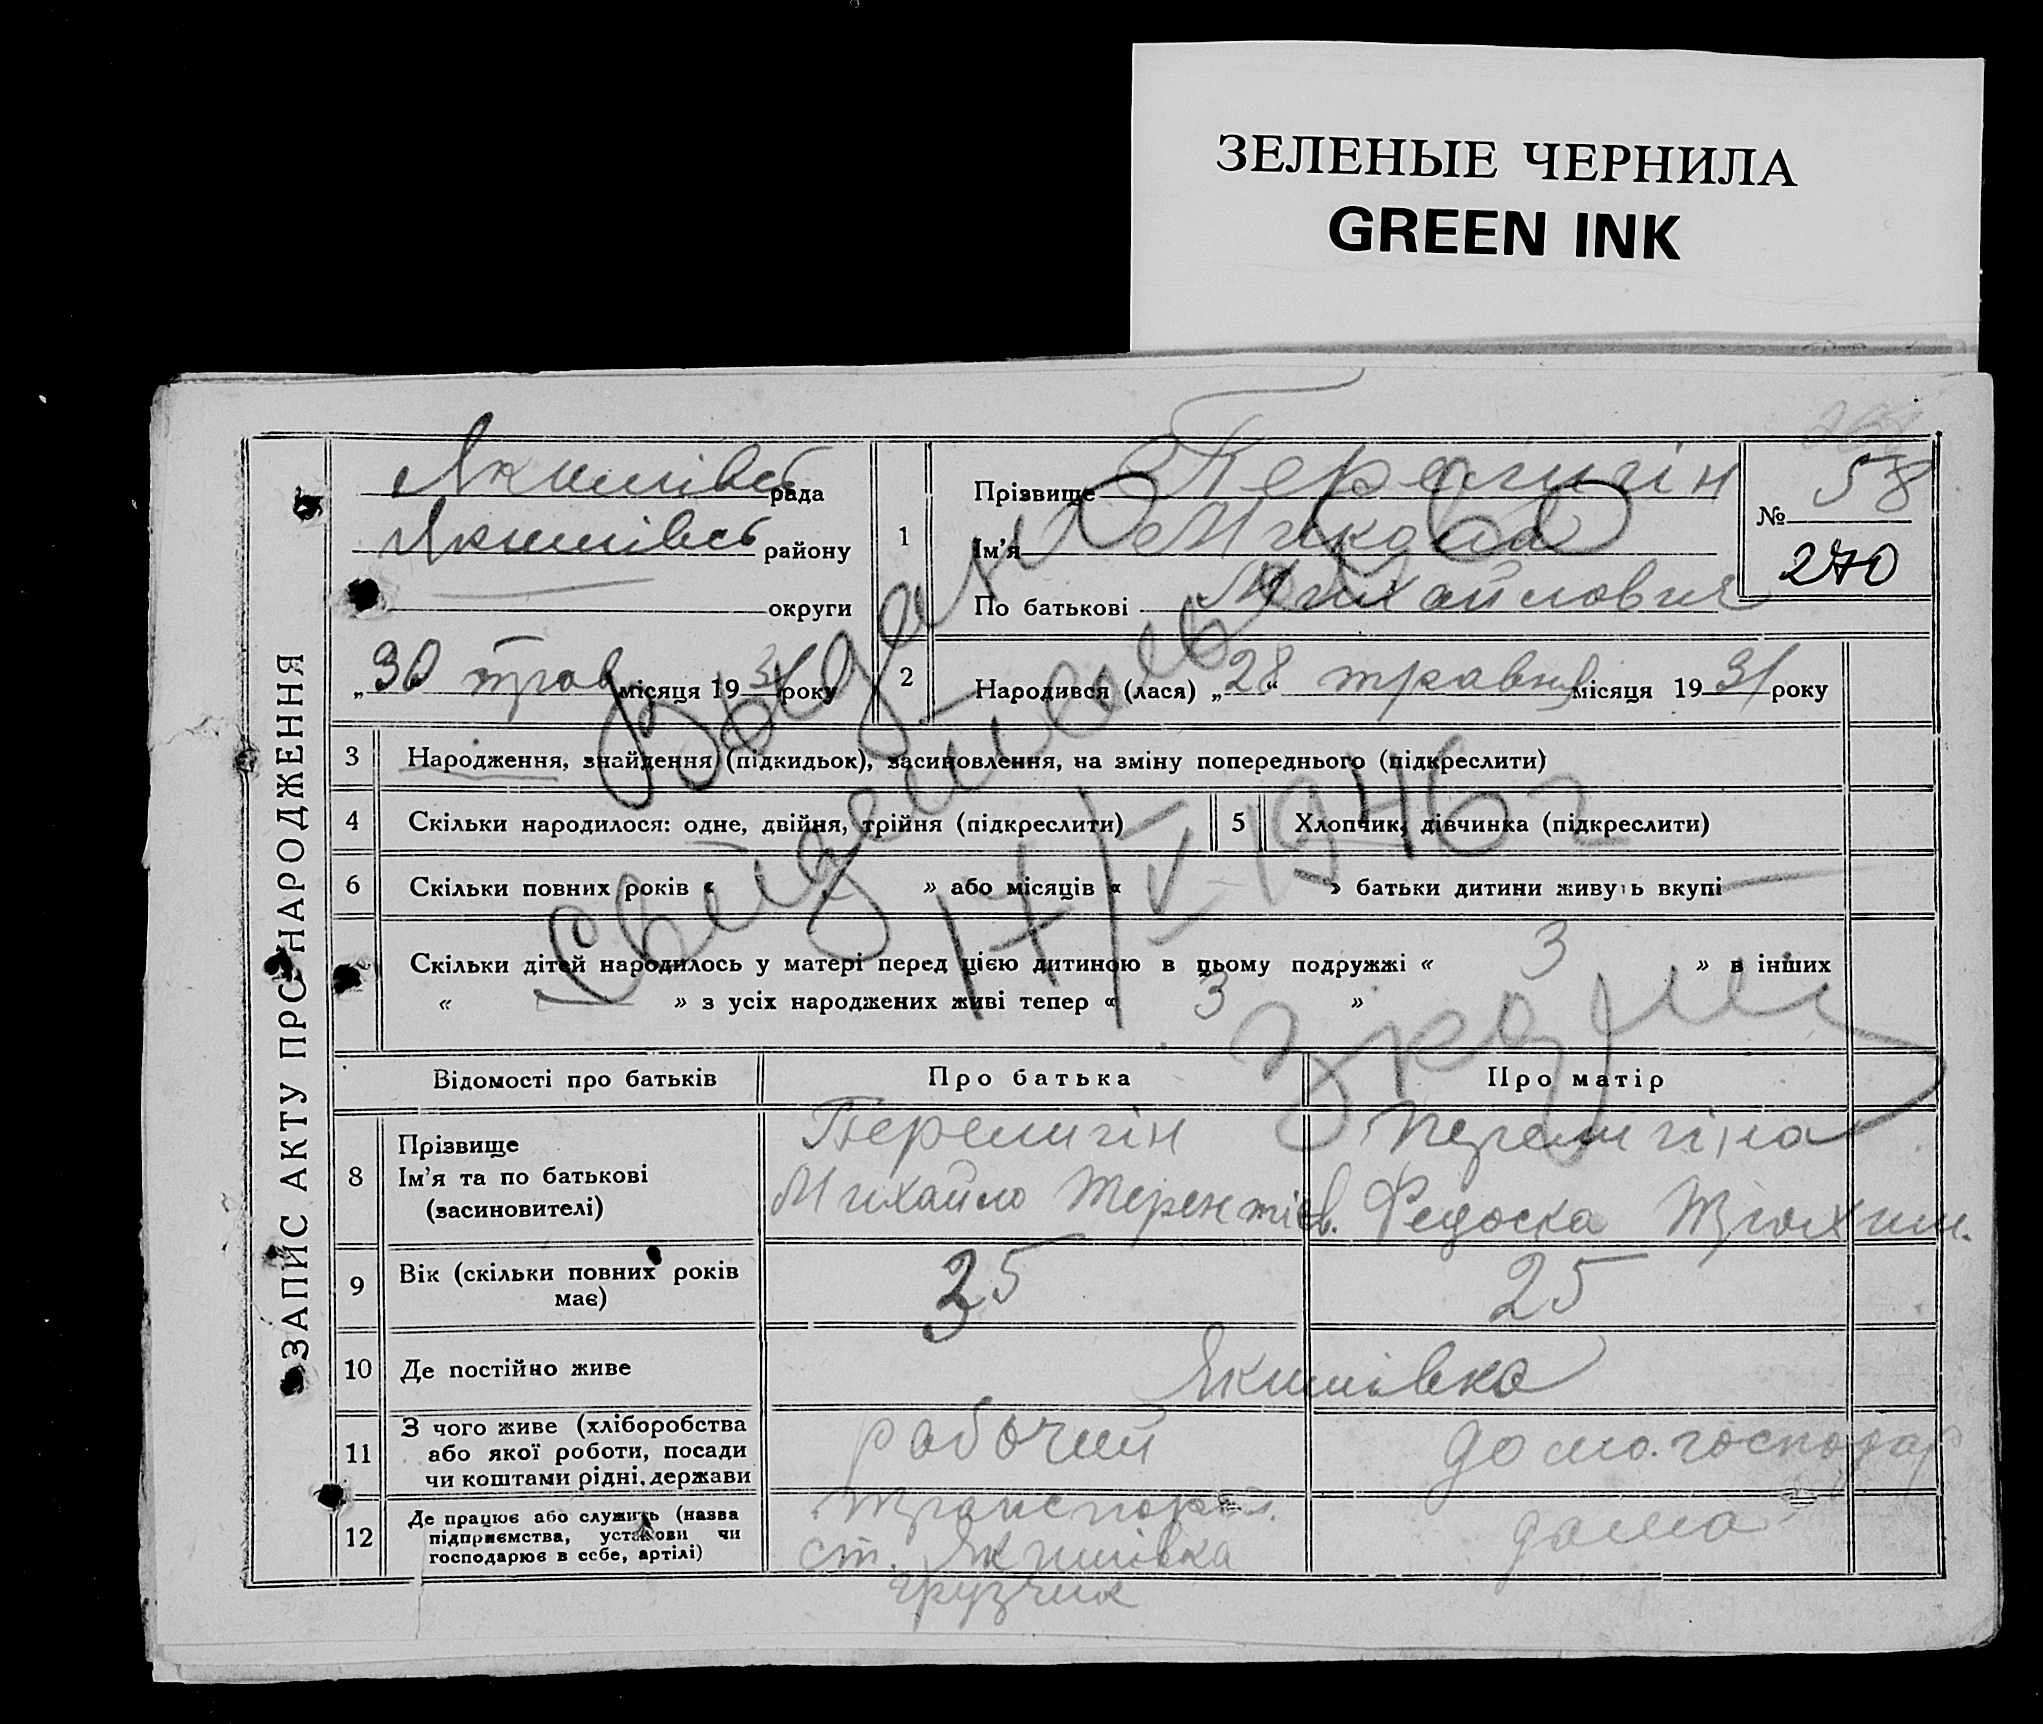 ЗЕЛЕНЫЕ ЧЕРНИЛА
GREEN INK
ЗАПИС АКТУ ПРО НАРОДЖЕННЯ
Якимівсь рада
Якимівсь району
округи
„30 трав місяця 1931 року
1
Прізвище Перелигін
Ім'я Микола
По батькові Михайлович
№ 58
270
2
Народився (лася) „28“ травня місяця 1931 року
Выдано
Свидетельство
17/V-1946 г
3 Народження, знайдення (підкидьок), засиновлення, на зміну попереднього (підкреслити)
4 Скільки народилося: одне, двійня, трійня (підкреслити)
5 Хлопчик, дівчинка (підкреслити)
6 Скільки повних років « » або місяців « » батьки дитини живуть вкупі —
Скільки дітей народилось у матері перед цією дитиною в цьому подружжі « 3 » в інших
« — » з усіх народжених живі тепер « 3 »
Відомості про батьків
Про батька
Про матір
8
Прізвище
Ім'я та по батькові
(засиновителі)
Перелигін
Михайло Терентіев.
Перелигіна
Федоска Трохим.
9 Вік (скільки повних років
має)
25
25
10 Де постійно живе
Якимівка
11
З чого живе (хліборобства
або якої роботи, посади
чи коштами рідні, держави
рабочий
домо.господар
12
Де працює або служить (назва
підприємства, установи чи
господарює в себе, артілі)
Транспорт.
ст. Якимівка
грузчик
дома